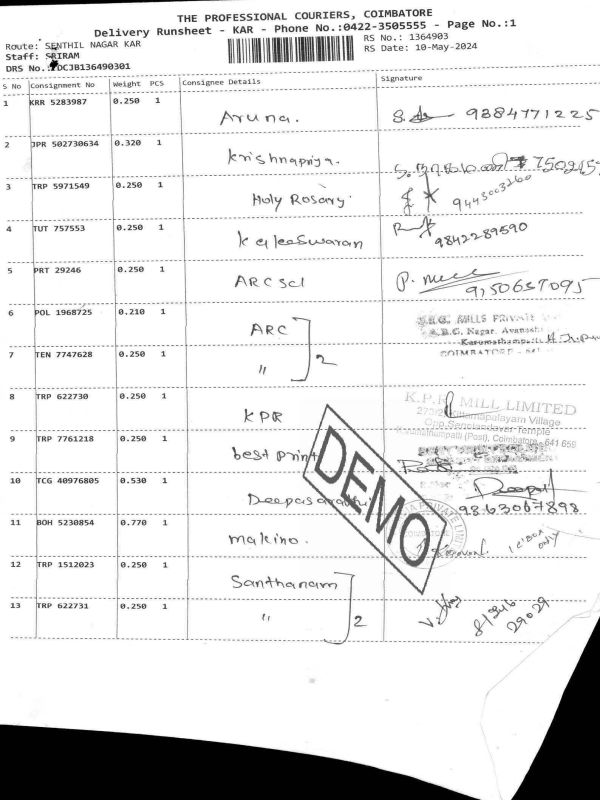 THE PROFESSIONAL COURIERS, COIMBATORE
Delivery Runsheet - KAR - Phone No.:0422-3505555 - Page No.:1
Route: SENTHIL NAGAR KAR
RS No.: 1364903
Staff: SRIRAM
RS Date: 10-May-2024
DRS No.: PDCJB136490301
S No Consignment No Weight PCS Consignee Details Signature
1 KRR 5283987 0.250 1 Aruna. 9384771225
2 JPR 502730634 0.320 1 Krishnapriya.
3 TRP 5971549 0.250 1 Holy Rosary 9443003260
4 TUT 757553 0.250 1 Kaleeswaran 9842289590
5 PRT 29246 0.250 1 ARC scl P. 9150657095
6 POL 1968725 0.210 1 ARC
MILLS PRIVATE
Nagar, Avanashi
Karumathampatti
COIMBATORE - 641
7 TEN 7747628 0.250 1 " 2
8 TRP 622730 0.250 1 KPR
K.P.R. MILL LIMITED
Kittampalayam Village
Temple
Karumathampatti (Post), Coimbatore - 641 659
9 TRP 7761218 0.250 1 best print
10 TCG 40976805 0.530 1 Deepasarathi Deepa 9863067898
11 BOH 5230854 0.770 1 makino. 1 c'Box only
12 TRP 1512023 0.250 1 Santhanam
13 TRP 622731 0.250 1 " 2 81346 29029
DEMO